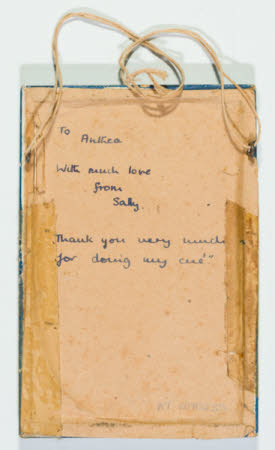 To
Anthea
With much love
from
Sally.
Thank you very much
for doing my